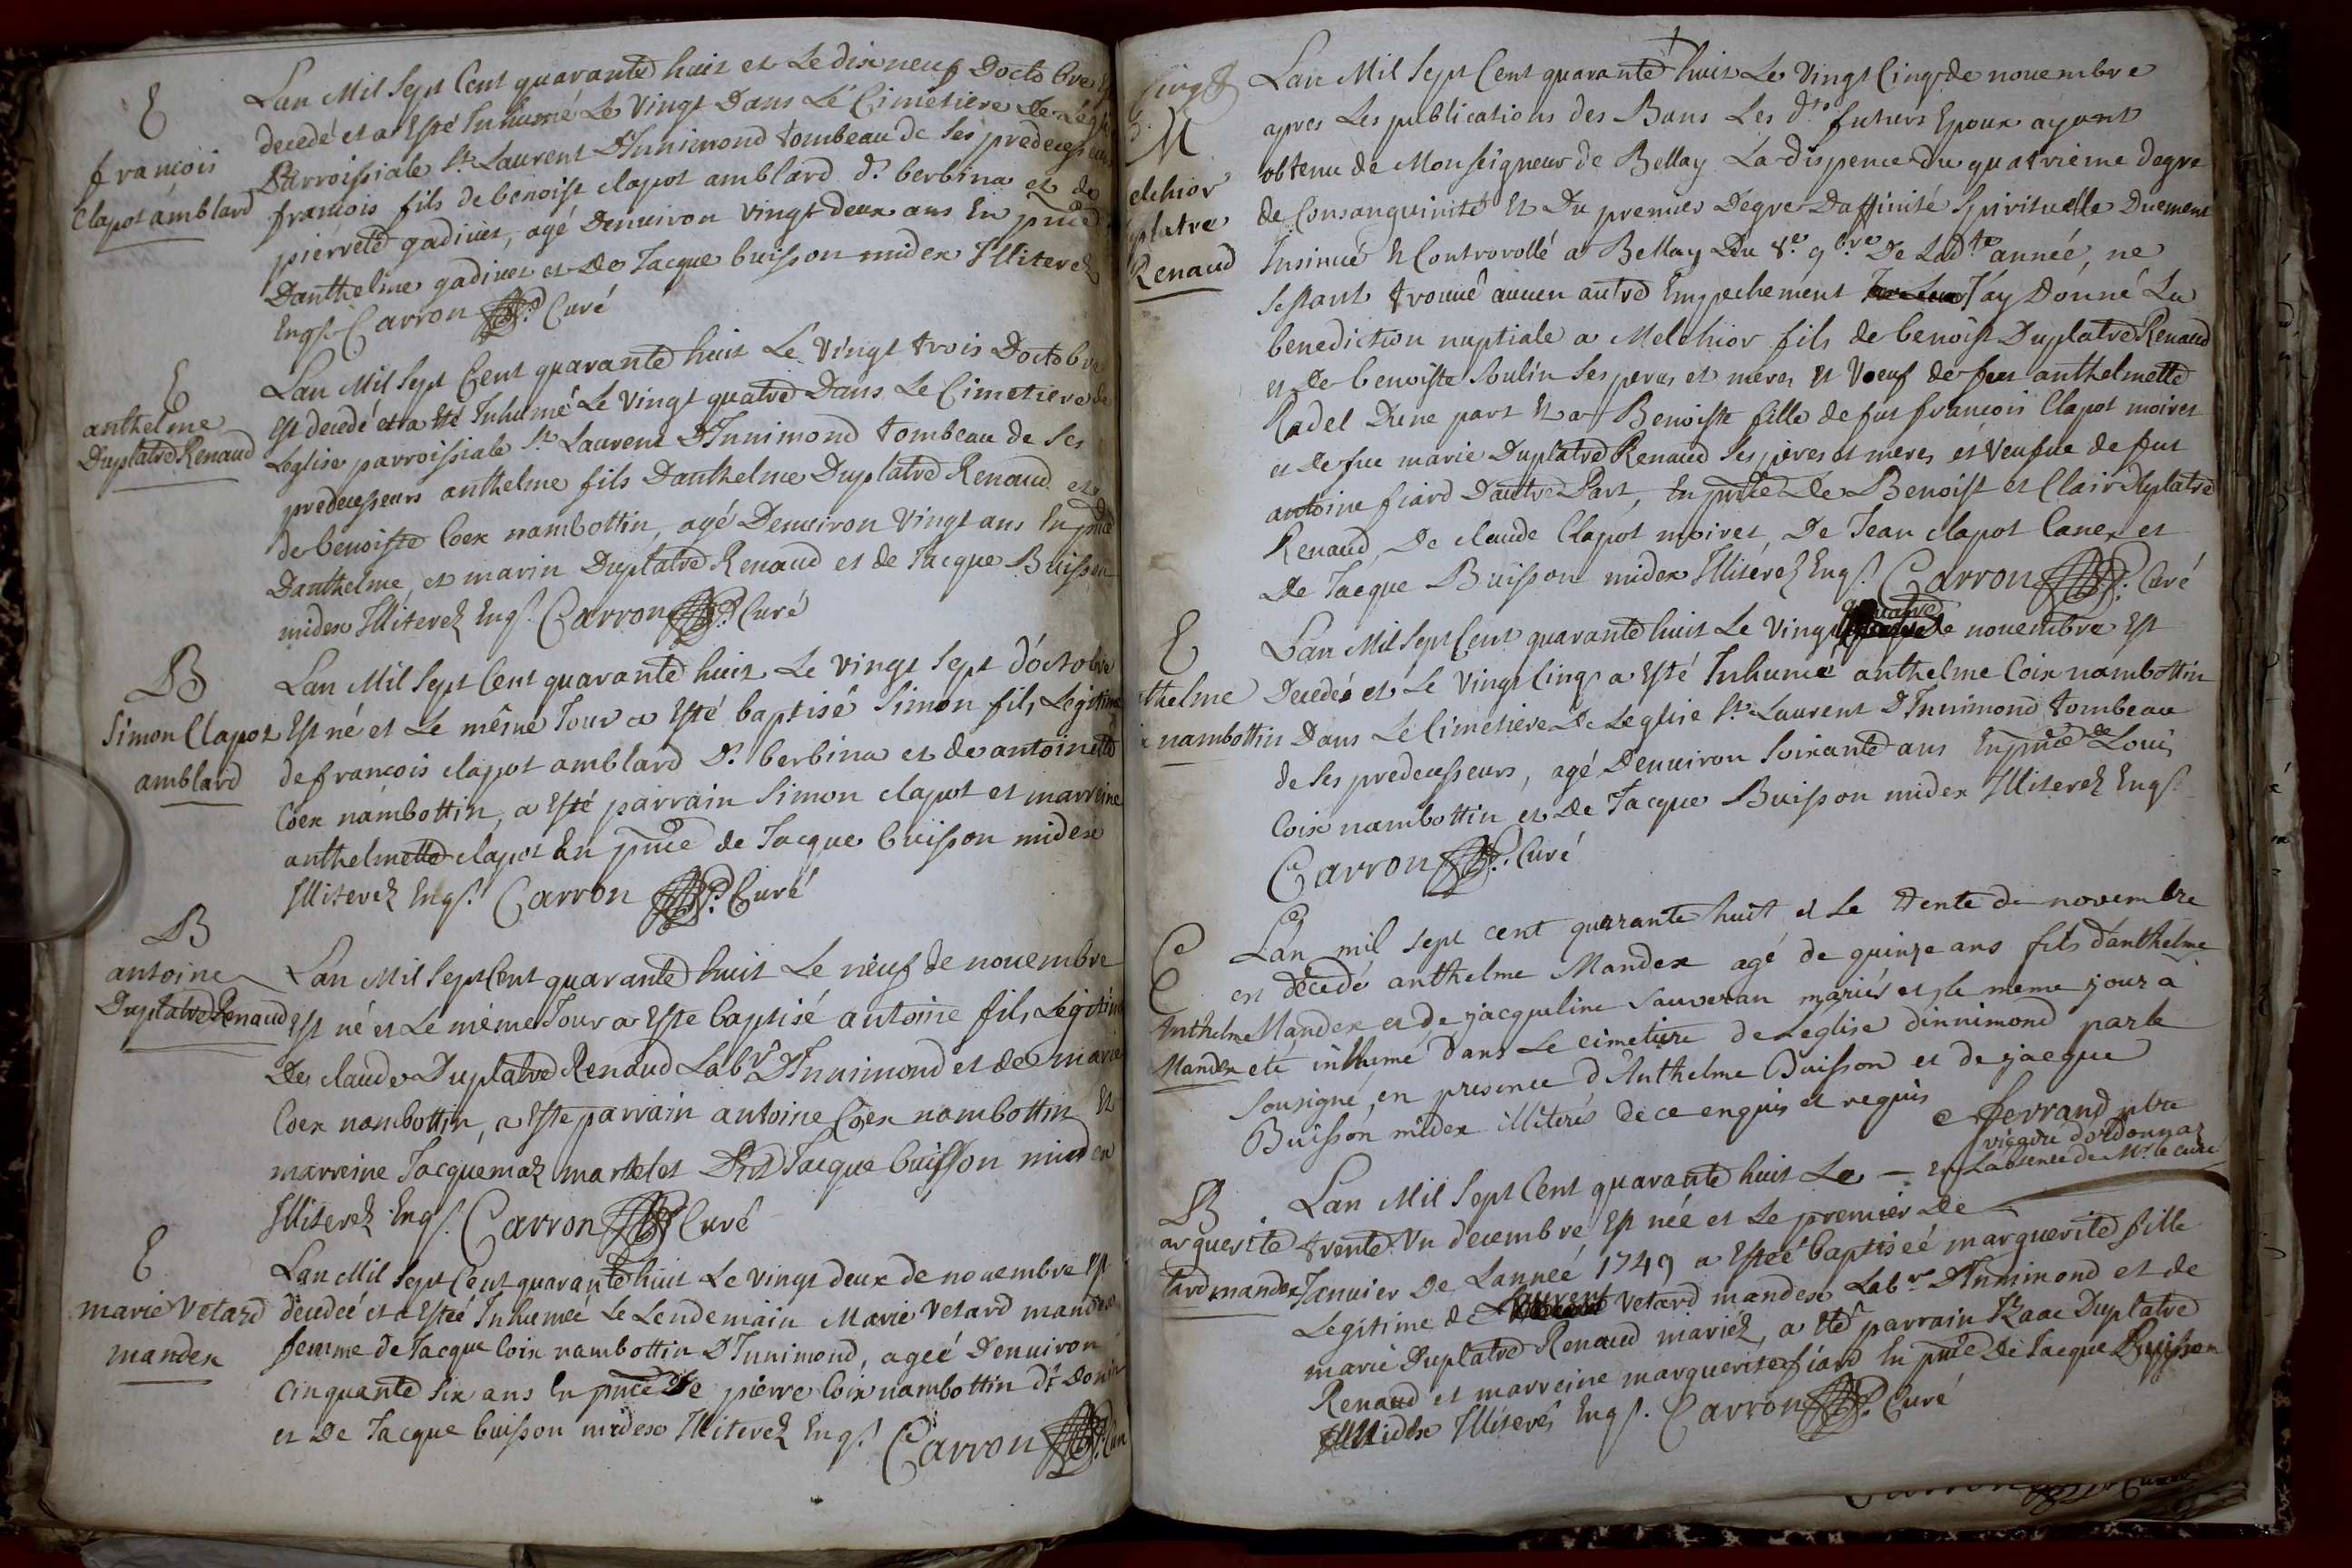 E
françois
Clapot amblard
Lan Mil Sept Cent quarante huit et Le dix neuf Doctobre
decedé et a Esté Inhumé Le Vingt Dans Le Cimetiere De Legli
Parroissiale St. Laurent DInnimond tombeau de Ses predecesseurs
francois fils de benoist clapot amblard d. berbina et de
pierrette gadiner, agé Denuiron Vingt deux ans En pnce
Danthelme gadiner et De Jacque buisson midex Illiterez
Enqs. Carron Curé
E
anthelme
Duplatre Renaud
Lan Mil Sept Cent quarante huit Le Vingt trois Doctobre
Est decedé et a Eté Inhumé Le Vingt quatre Dans Le Cimetiere de
Leglise parroissiale St. Laurent DInnimond tombeau de Ses
predecesseurs anthelme fils Danthelme Duplatre Renaud et
de benoiste Coex nambottin, agé Denuiron Vingt ans En pnce
Danthelme, et marin Duplatre Renaud et de Jacque Buisson
midex Illiterez Enqs. Carron Curé
B
Simon Clapot
amblard
Lan Mil Sept Cent quarante huit Le Vingt Sept doctobre
Est né et Le même Jour a Esté baptisé Simon fils Legitime
de francois clapot amblard d. berbina et de antoinette
Coex nambottin, a Esté parrain Simon clapot et marreine
anthelmette clapot En pnce de Jacque buisson midex
Illiterez Enqs. Carron Curé
B
antoine
Duplatre Renaud
Lan Mil Sept Cent quarante huit Le neuf de nouembre
Est né et Le même Jour a Este baptisé antoine fils Legitime
De claude Duplatre Renaud Labr. DInnimond et de marie
Coex nambottin, a Este parrain antoine Coex nambottin Et
marreine Jacquemaz martelet Jacque buisson midex
Illiterez Enqs. Carron Curé
E
marie Vetard
mandex
Lan Mil Sept Cent quarante huit Le vingt deux de nouembre Est
decedeé et a Esteé Inhumeé Le Lendemain Marie Vetard mandex
femme de Jacque Coix nambottin DInnimond, ageé Denuiron
Cinquante Six ans En pnce De pierre Coix nambottin dt.
et De Jacque buisson midex Illiterez Enqs. Carron
M
elchior
platre
Renaud
Lan Mil Sept Cent quarante huit Le Vingt Cinq de nouembre
apres Les publications des Bans Les dts. futurs Epoux ayant
obtenu de Monseigneur de Bellay La dispence du quatrieme degre
de Consanguinité Et Du premier Degre Daffinité Spirituelle Duement
Insinué Et Controrollé a Bellay Du 8e. 9bre De Ladte. année, ne
Sestant trouué aucun autre Empechement Jay Donné La
benediction nuptiale a Melchior fils de benoist Duplatre Renaud
et De benoiste Soulin Ses peres et meres Et Voeuf de feu anthelmette
Radel Dune part Et a Benoiste fille de fut francois Clapot moiret
et de fue marie Duplatre Renaud Ses peres et meres et Veufue de fut
antoine fiard Dautre Part, En pnce De Benoist et Clair Duplatre
Renaud, De claude Clapot moiret, De Jean clapot Canex et
De Jacque Buisson midex Illiterez Enqs. Carron Curé
E
thelme
nambottin
Lan Mil Sept Cent quarante huit Le Vingt quatre de nouembre Est
Decedeé et Le Vingt Cinq a Esté Inhumé anthelme Coix nambottin
Dans Le Cimetiere De Leglise St. Laurent DInnimond tombeau
de Ses predecesseurs, agé Denuiron Soixante ans En pnce de Louis
Coix nambottin et De Jacque Buisson midex Illiterez Enqs.
Carron Curé
E
Anthelme
Mandex
Lan mil sept cent quarante huit et Le trente de novembre
est décédé anthelme Mandex agé de quinze ans fils d'anthelme
Mandex et de jacqueline Sauveran mariés et le meme jour a
eté inhumé dans Le cimetiere de Leglise d'innimond par le
Sousigné, en presence d'Anthelme Buisson et de jacque
Buisson midex illiterés de ce enquis et requis
Ferrand ptre
vicaire d'ordonnaz
en L'absence de Mr. le curé
B
arguerite
tard mandex
Lan Mil Sept Cent quarante huit Le
trente Un decembre Est neé et Le premier De
Januier De Lanneé 1749 a Esteé baptiseé marguerite fille
Legitime de Laurent Vetard mandex Labr. DInnimond et de
marie Duplatre Renaud mariéz, a Eté parrain Isaac Duplatre
Renaud et marreine marguerite fiard En pnce De Jacque Buisson
Midex Illiterés Enqs. Carron Curé